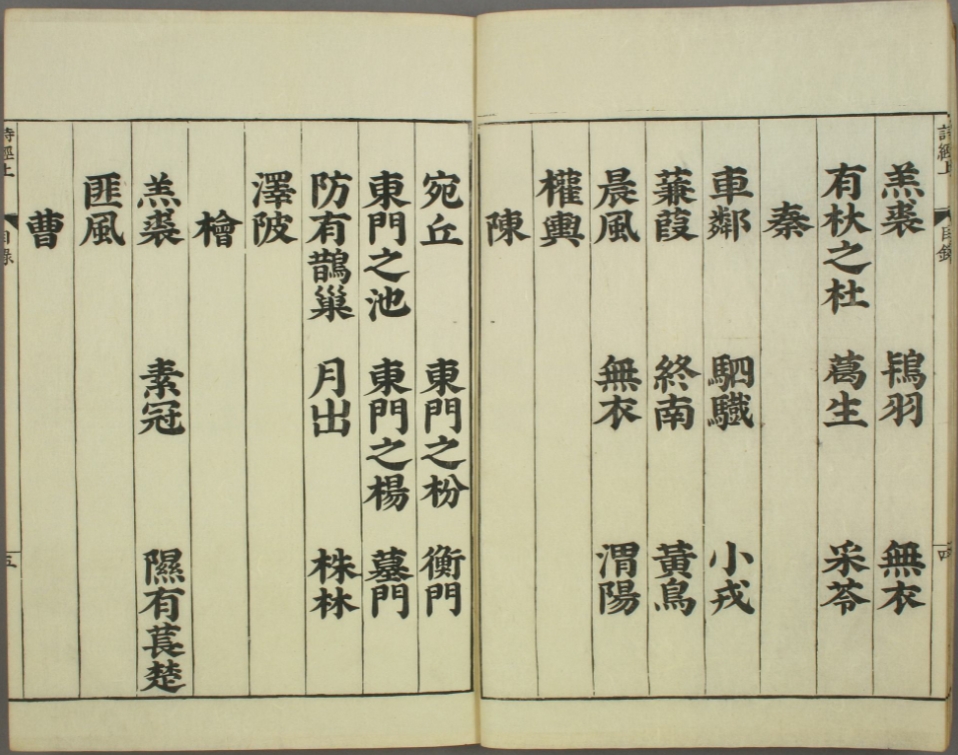 詩經上 目錄 四
羔裘 鴇羽 無衣
有杕之杜 葛生 采苓
秦
車鄰 駟驖 小戎
蒹葭 終南 黃鳥
晨風 無衣 渭陽
權輿
陳
宛丘 東門之枌 衡門
東門之池 東門之楊 墓門
防有鵲巢 月出 株林
澤陂
檜
羔裘 素冠 隰有萇楚
匪風
曹
詩經上 目錄 五